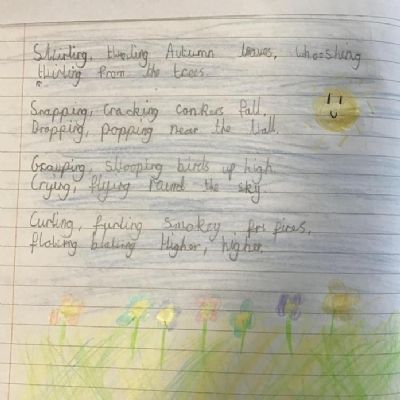 Swirling, twirling Autumn leaves, whooshing
thirling from the trees
Snapping, cracking conkers fall.
Dropping, popping near the wall.
Grouping, swooping birds up high.
Crying, flying round the sky.
Curling, furling smokey fires,
Higher, higher